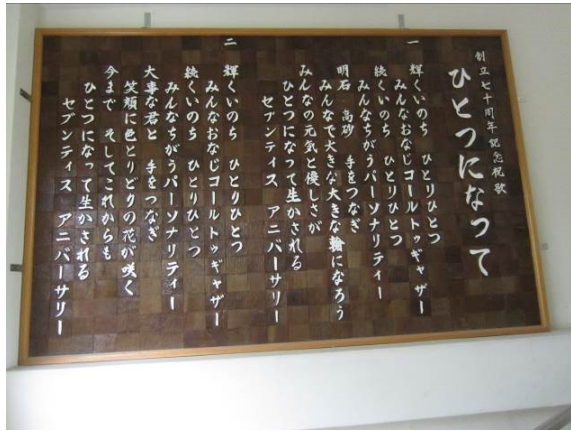 創立七十周年記念祝歌
ひとつになって
一 輝くいのち ひとりひとつ
みんなおなじコールトゥギャザー
続くいのち ひとりひとつ
みんなちがうパーソナリティー
明石 高砂 手をつなぎ
みんなで大きな大きな輪になろう
みんなの元気と優しさが
ひとつになって生かされる
セブンティス アニバーサリー
二 輝くいのち ひとりひとつ
みんなおなじコールトゥギャザー
続くいのち ひとりひとつ
みんなちがうパーソナリティー
大事な君と 手をつなぎ
笑顔に色とりどりの花が咲く
今まで そしてこれからも
ひとつになって生かされる
セブンティス アニバーサリー